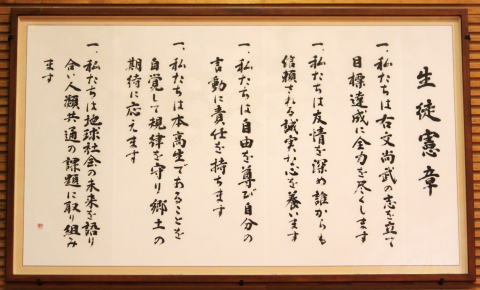 生徒憲章
一、私たちは右文尚武の志を立て
目標達成に全力を尽くします
一、私たちは友情を深め誰からも
信頼される誠実な心を養います
一、私たちは自由を尊び自分の
言動に責任を持ちます
一、私たちは本高生であることを
自覚して規律を守り郷土の
期待に応えます
一、私たちは地球社会の未来を語り
合い人類共通の課題に取り組み
ます